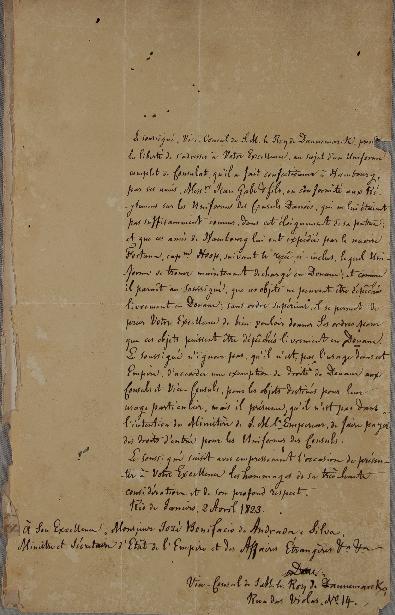 Le soussigné, Vice-Consul de S. M. le Roy de Dannemarck, prend
la liberté de s'adresser à Votre Excellence, au sujet d'un Uniforme
complet de Consulat, qu'il a fait confectionner à Hambourg,
par ses amis, Mess.rs Jean Gabe & fils, en conformité aux Ré-
glemens sur les Uniformes des Consuls Danois, qui ne lui étaient
pas suffisamment connus, dans cet éloignement de sa patrie;
et que ces amis de Hambourg lui ont expédié par le navire
Fortuna, cap.ne suivant le ci-inclus, lequel Uni-
forme se trouve maintenant déchargé en Douane; et comme
il parait au soussigné, que ces objets ne peuvent être dépêchés
livrement en Douane, sans ordre supérieur, il se permet de
prier Votre Excellence de bien vouloir donner Ses ordres, pour
que ces objets puissent être dépêchés livrement en Douane.
Le soussigné n'ignore pas, qu'il n'est pas l'usage dans cet
Empire, d'accorder une exemption de droits de Douane aux
Consuls et Vice-Consuls, pour les objets destinés pour leur
usage particulier, mais il présume, qu'il n'est pas dans
l'intention du Ministère de S. M. l'Empereur, de faire payer
des droits d'entrée pour les Uniformes des Consuls.
Le soussigné saisit avec empressement l'occasion de présen-
ter à Votre Excellence les hommages de sa très haute
considération et de son profond respect.
Rio de Janeiro, 2 Avril 1823.
A Son Excellence, Monsieur José Bonifacio de Andrada e Silva,
Ministre et Sécrétaire d'Etat de l'Empire et des Affaires Etrangères &a &a
Vice-Consul de Sa M. le Roy de Dannemarck,
Rua das Violas, No 14.